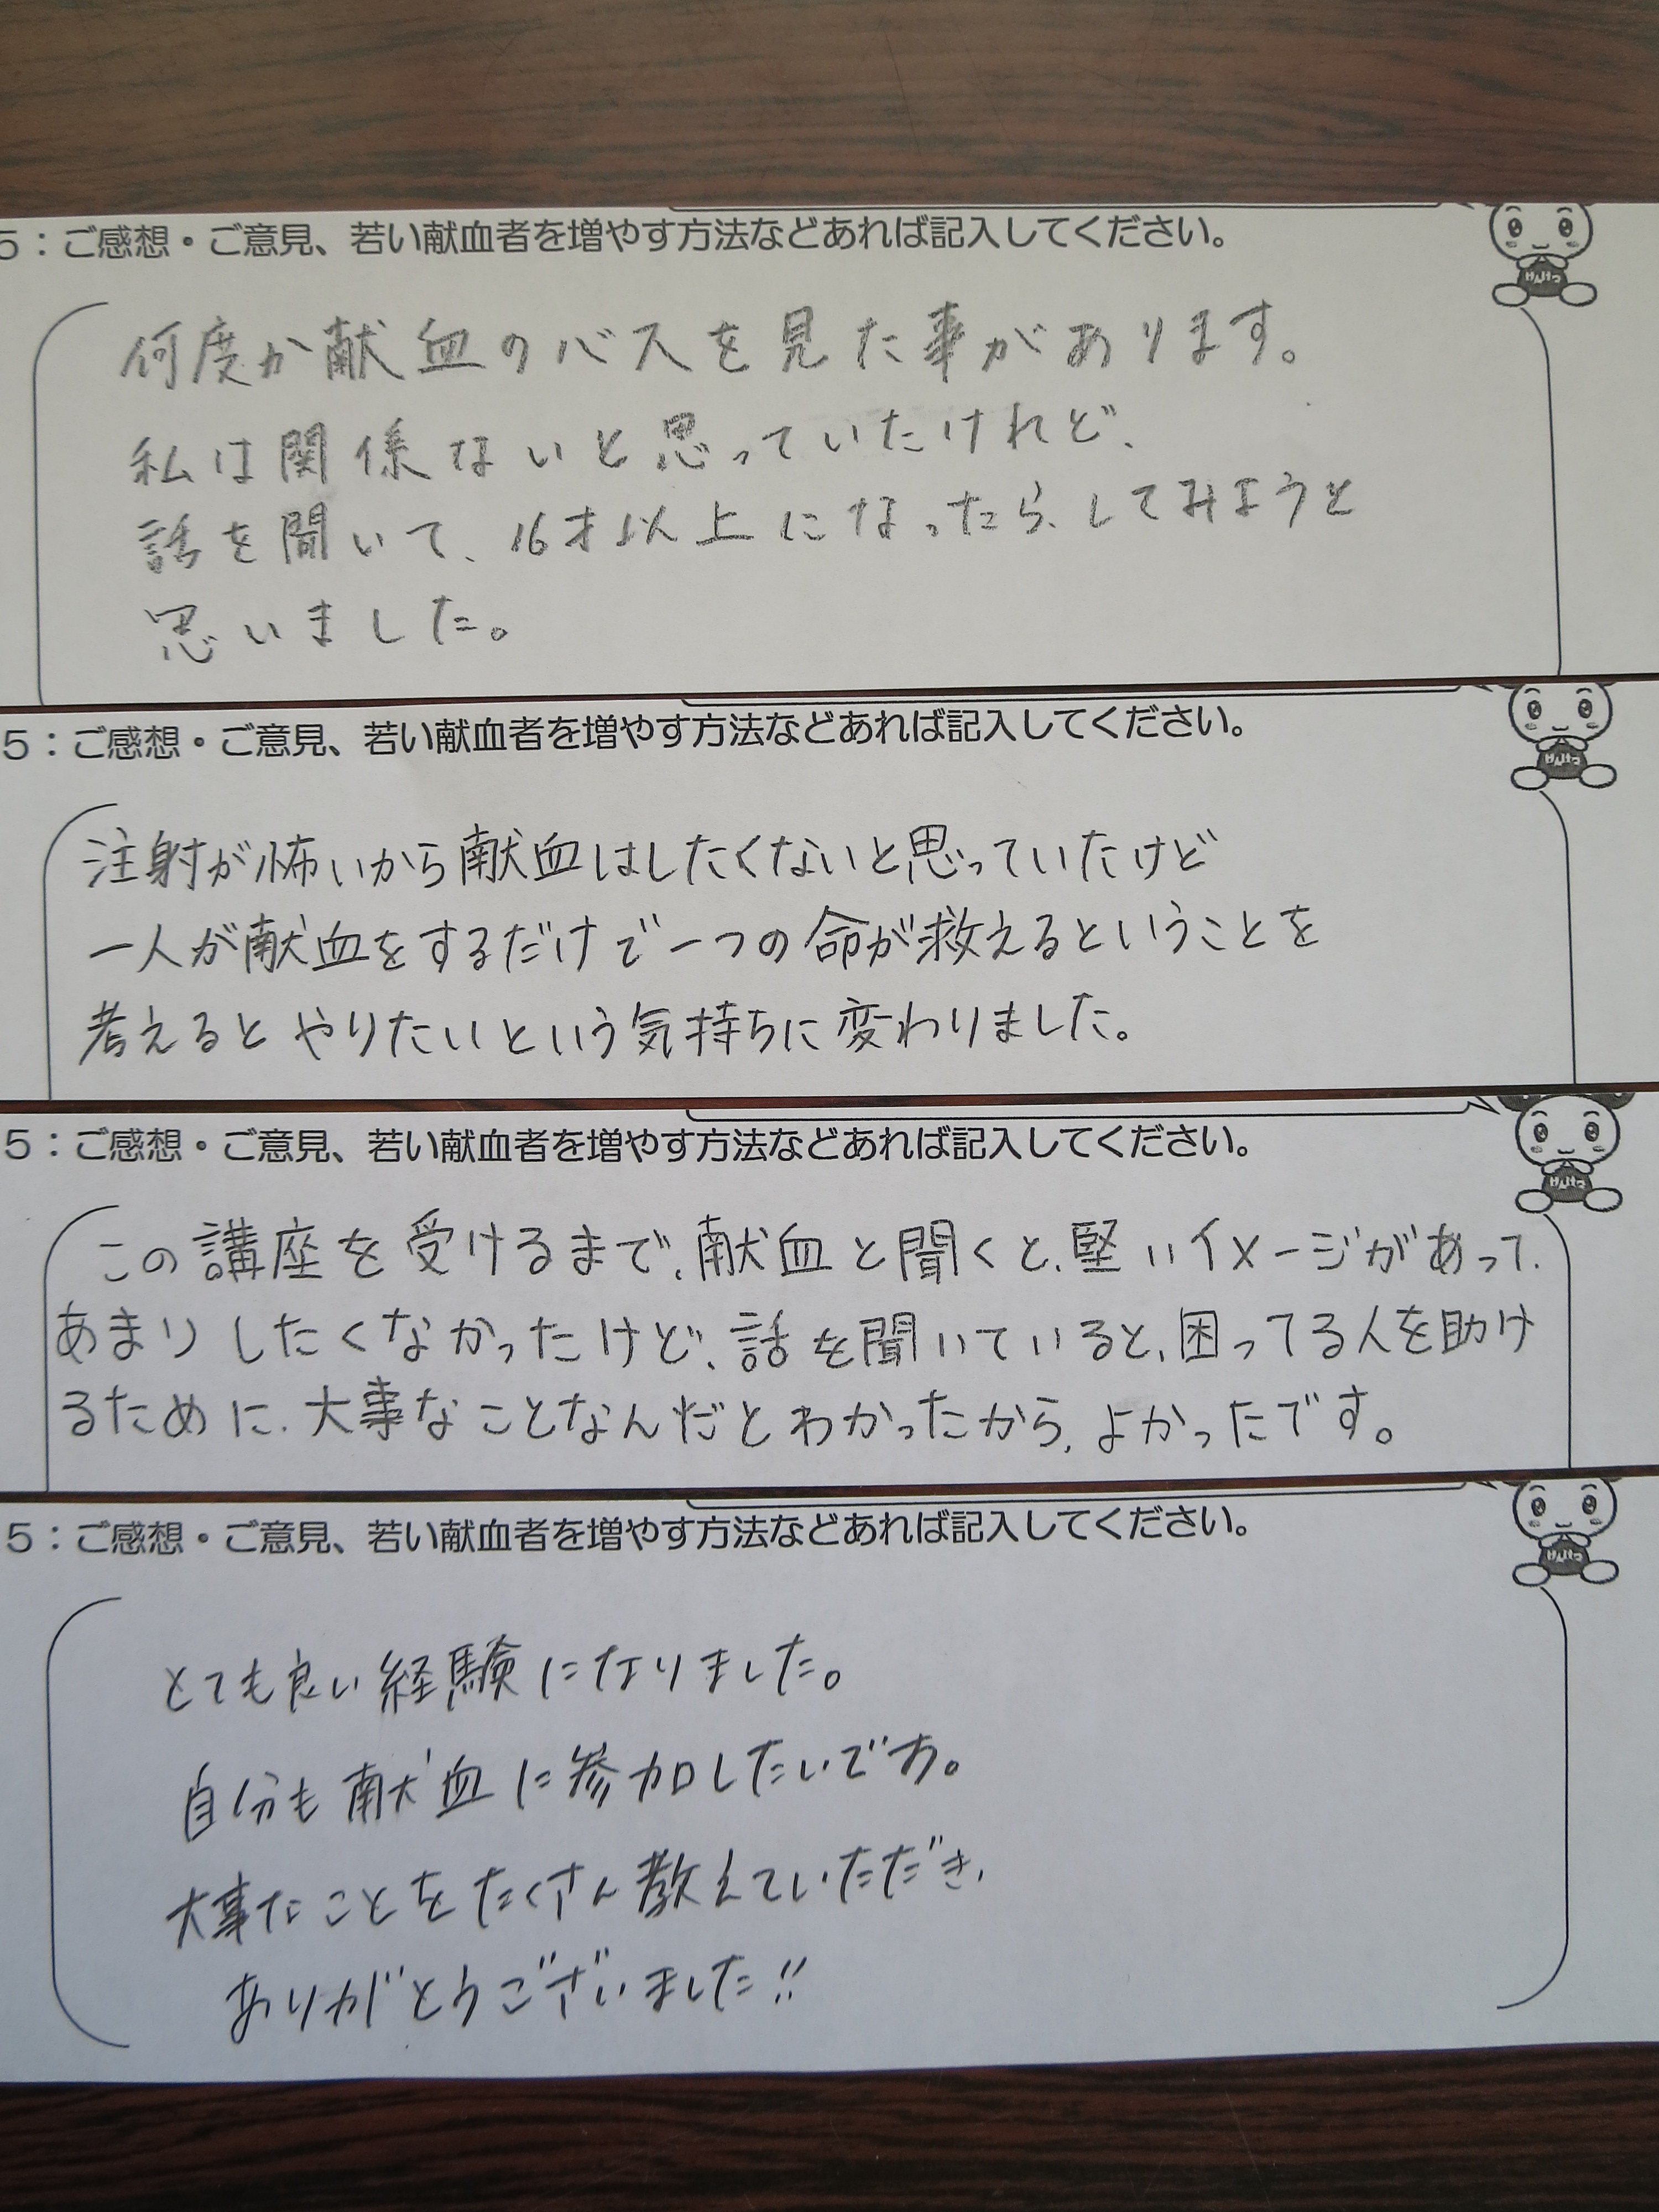 5：ご感想・ご意見、若い献血者を増やす方法などあれば記入してください。
けんけつ
何度か献血のバスを見た事があります。
私は関係ないと思っていたけれど、
話を聞いて、16才以上になったら、してみようと
思いました。
5：ご感想・ご意見、若い献血者を増やす方法などあれば記入してください。
けんけつ
注射が怖いから献血はしたくないと思っていたけど
一人が献血をするだけで一つの命が救えるということを
考えるとやりたいという気持ちに変わりました。
5：ご感想・ご意見、若い献血者を増やす方法などあれば記入してください。
けんけつ
この講座を受けるまで、献血と聞くと、堅いイメージがあって、
あまりしたくなかったけど、話を聞いていると、困ってる人を助け
るために、大事なことなんだとわかったから、よかったです。
5：ご感想・ご意見、若い献血者を増やす方法などあれば記入してください。
けんけつ
とても良い経験になりました。
自分も献血に参加したいです。
大事なことをたくさん教えていただき、
ありがとうございました!!